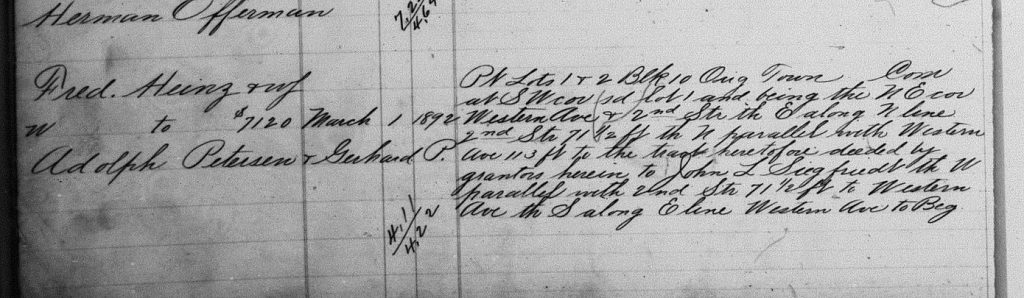 Herman Offerman
Fred. Heinz & wf
W to $7120 March 1 1892
Adolph Petersen & Gerhard P.
4.11/4.22
Pt Lots 1 & 2 Blk 10 Orig Town Com
at SW cor sd lot 1 and being the NE cor
Western Ave & 2nd Str th E along N line
2nd Str 71 1/2 ft th N parallel with Western
Ave 113 ft to the tract heretofore deeded by
grantors herein to John L Siegfriedt th W
parallel with 2nd Str 71 1/2 ft to Western
Ave th S along E line Western Ave to Beg